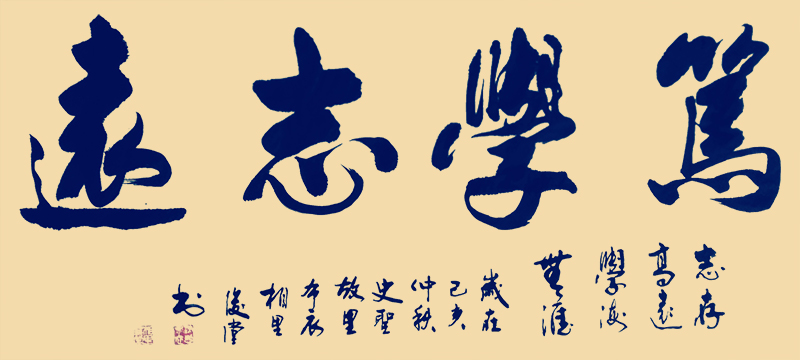 篤學志遠
志存
高遠
學海
無涯
歲在
己亥
仲秋
史聖
故里
布衣
相里
书